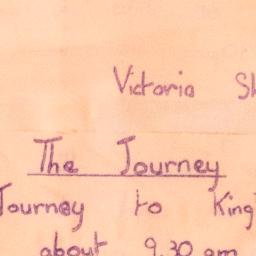 Victoria
The Journey
Journey to King
about 9.30 am